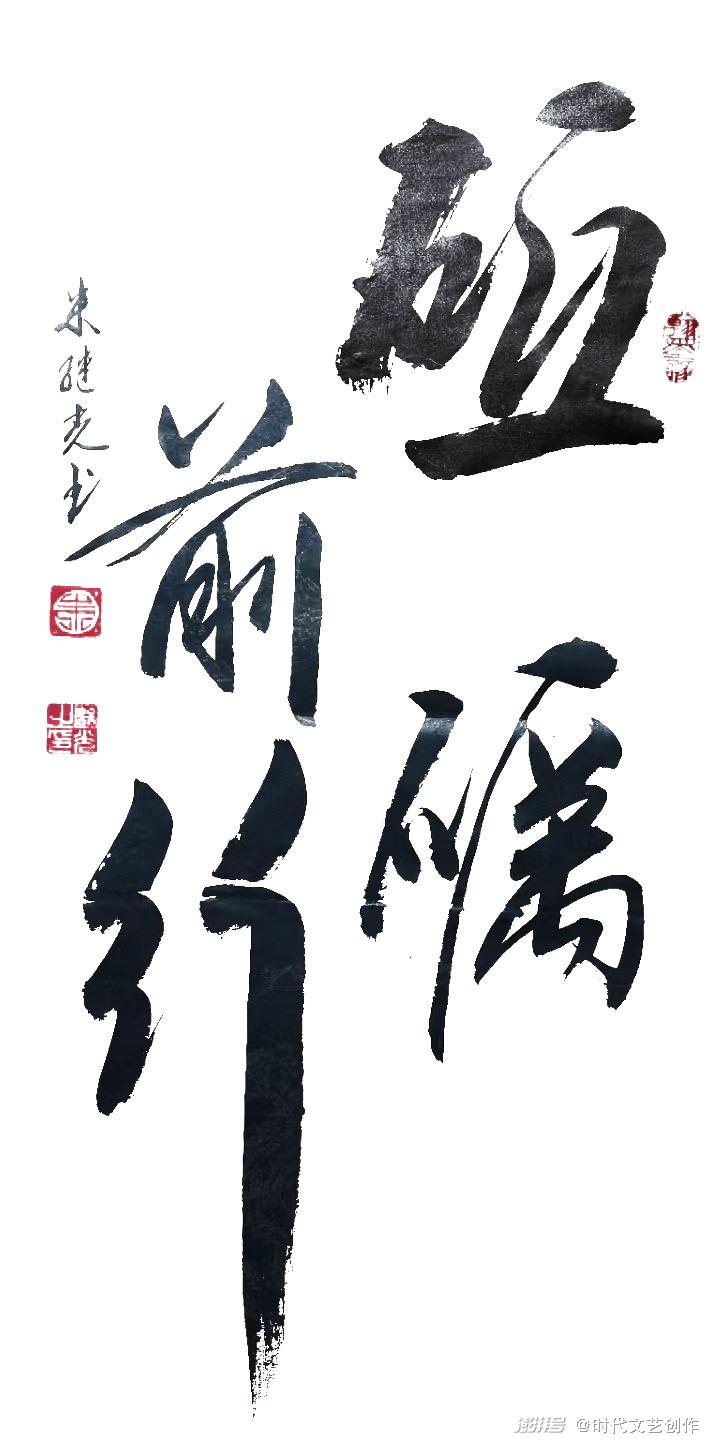 砥礪
前行
朱继光书
澎湃号 @时代文艺创作